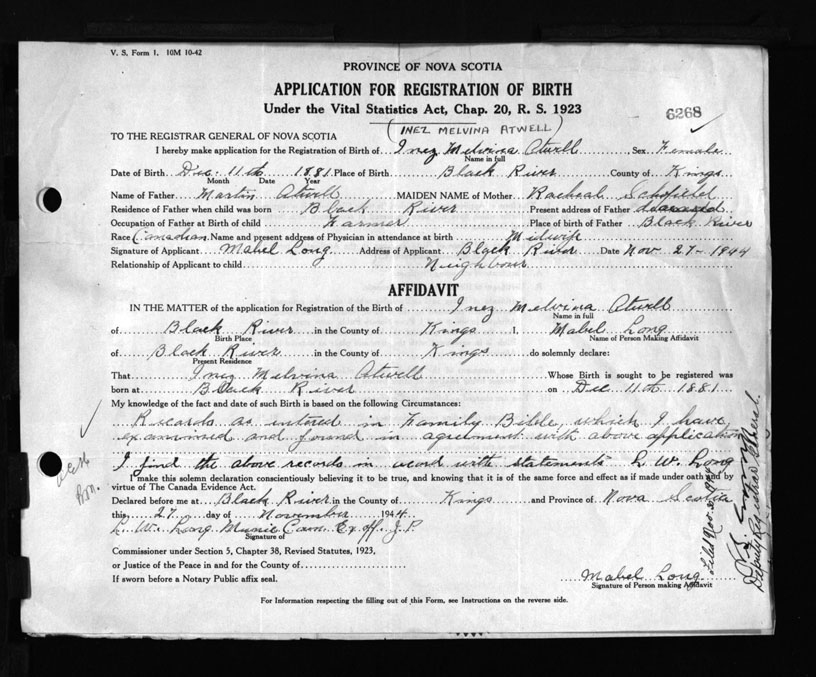 V. S. Form 1. 10M 10-42
PROVINCE OF NOVA SCOTIA
APPLICATION FOR REGISTRATION OF BIRTH
Under the Vital Statistics Act, Chap. 20, R. S. 1923
6268
(INEZ MELVINA ATWELL)
TO THE REGISTRAR GENERAL OF NOVA SCOTIA
I hereby make application for the Registration of Birth of Inez Melvina Atwell Sex Female
Name in full
Date of Birth Dec. 11th 1881 Place of Birth Black River County of Kings
Month Date Year
Name of Father Martin Atwell MAIDEN NAME of Mother Racheal Schofield
Residence of Father when child was born Black River Present address of Father deceased
Occupation of Father at Birth of child Farmer Place of birth of Father Black River
Race Canadian Name and present address of Physician in attendance at birth Midwife
Signature of Applicant Mabel Long Address of Applicant Black River Date Nov 27 - 1944
Relationship of Applicant to child Neighbour
AFFIDAVIT
IN THE MATTER of the application for Registration of the Birth of Inez Melvina Atwell
Name in full
of Black River in the County of Kings I, Mabel Long
Birth Place Name of Person Making Affidavit
of Black River in the County of Kings do solemnly declare:
Present Residence
That Inez Melvina Atwell Whose Birth is sought to be registered was
born at Black River on Dec 11th 1881
My knowledge of the fact and date of such Birth is based on the following Circumstances:
Records as entered in Family Bible, which I have
examined and found in agreement with above application
I find the above records in accord with statements L. W. Long
I make this solemn declaration conscientiously believing it to be true, and knowing that it is of the same force and effect as if made under oath and by
virtue of The Canada Evidence Act.
Declared before me at Black River in the County of Kings and Province of Nova Scotia
this 27 day of November 1944
L. W. Long Munic Coun. Ex off. J. P.
Signature of
Commissioner under Section 5, Chapter 38, Revised Statutes, 1923,
or Justice of the Peace in and for the County of
If sworn before a Notary Public affix seal.
Mabel Long
Signature of Person making Affidavit
For Information respecting the filling out of this Form, see Instructions on the reverse side.
Filed Nov 30 1944
Deputy Registrar General